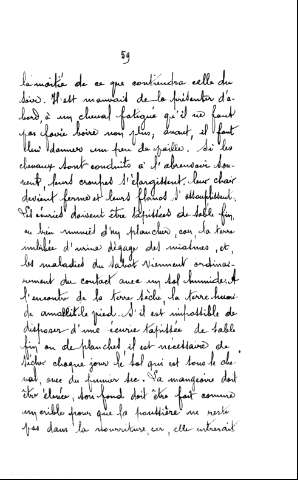 59
la moitié de ce que contiendra celle du
soir. Il est mauvais de la présenter d'a-
bord à un cheval fatigué qu'il ne faut
pas faire boire non plus, avant, il faut
leur donner un peu de paille. Si les
chevaux sont conduits à l'abreuvoir sou-
vent, leurs croupes s'élargissent, leur chair
devient ferme et leurs flancs s'assouplissent.
Les écuries doivent être tapissées de sable fin,
ou bien munies d'un plancher, car la terre
imbibée d'urine dégage des miasmes, et,
les maladies du sabot viennent ordinai-
rement du contact avec un sol humide. A
l'encontre de la terre sèche, la terre humi-
de amollit le pied. S'il est impossible de
disposer d'une écurie tapissée de sable
fin ou de planches, il est nécessaire de
sécher chaque jour le sol qui est sous le che-
val, avec du fumier sec. La mangeoire doit
être élevée, son fond doit être fait comme
un crible pour que la poussière ne reste
pas dans la nourriture, car, elle entrerait